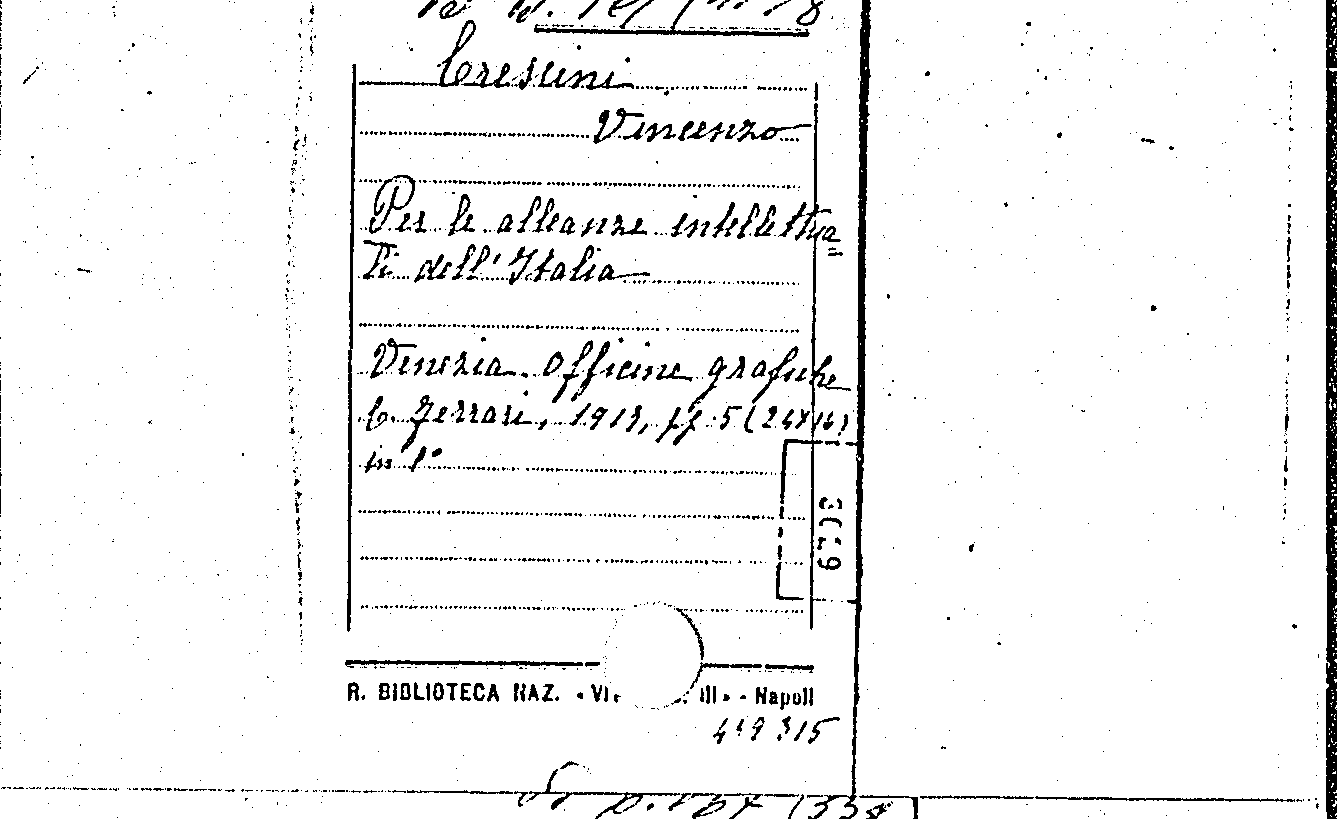 Crescini
Vincenzo
Per le alleanze intellettua=
li dell'Italia
Venezia. Officine grafiche
C. Ferrari, 1913, pp. 5 (24x16)
in 8°
R. BIBLIOTECA NAZ. « Vi III » - Napoli